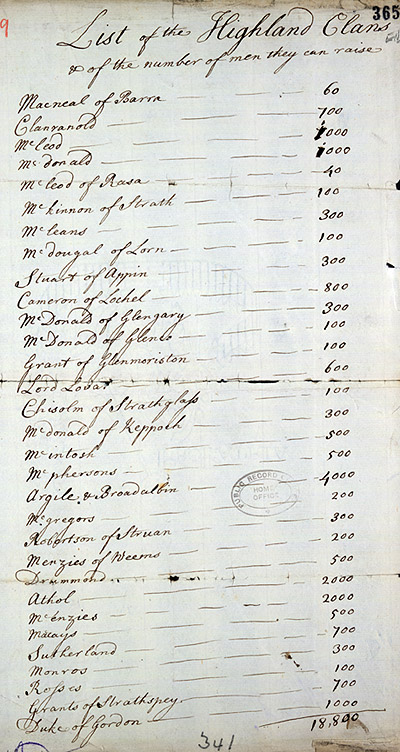 9
365
List of the Highland Clans
& of the number of men they can raise
Macneal of Barra 60
Clanranold 700
Mc leod 1000
Mc donald 1000
Mc leod of Rasa 40
Mc kinnon of Strath 100
Mc leans 300
Mc dougal of Lorn 100
Stuart of Appin 300
Cameron of Lochel 800
Mc Donald of Glengary 300
Mc Donald of Glenco 100
Grant of Glenmoriston 100
Lord Lovat 600
Chisolm of Strathglass 100
Mc donald of Keppoch 300
Mc intosh 500
Mc phersons 500
Argile & Broadalbin 4000
Mcgregors 200
Robertson of Struan 300
Menzies of Weems 200
Drummond 500
Athol 2000
Mc enzies 2000
Macays 500
Sutherland 700
Monros 300
Rosses 100
Grants of Strathspey 700
Duke of Gordon 1000
18,890
PUBLIC RECORD
HOME
OFFICE
341